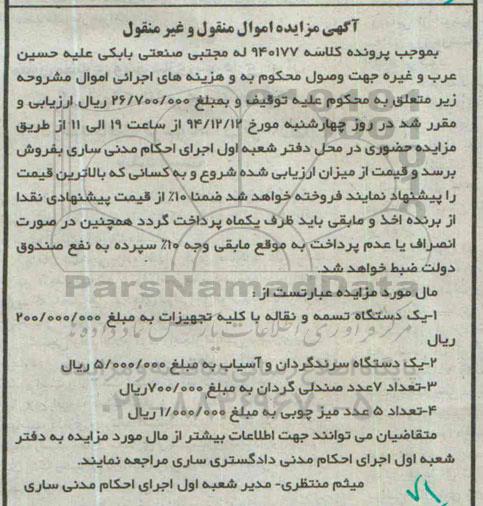 آگهی مزایده اموال منقول و غیر منقول
بموجب پرونده کلاسه ۹۴۰۱۷۷ له مجتبی صنعتی بابکی علیه حسین
عرب و غیره جهت وصول محکوم به و هزینه های اجرائی اموال مشروحه
زیر متعلق به محکوم علیه توقیف و بمبلغ ۲۶/۷۰۰/۰۰۰ ریال ارزیابی و
مقرر شد در روز چهارشنبه مورخ ۹۴/۱۲/۱۲ از ساعت ۱۹ الی ۱۱ از طریق
مزایده حضوری در محل دفتر شعبه اول اجرای احکام مدنی ساری بفروش
برسد و قیمت از میزان ارزیابی شده شروع و به کسانی که بالاترین قیمت
را پیشنهاد نمایند فروخته خواهد شد ضمنا ۱۰٪ از قیمت پیشنهادی نقدا
از برنده اخذ و مابقی باید ظرف یکماه پرداخت گردد همچنین در صورت
انصراف یا عدم پرداخت به موقع مابقی وجه ۱۰٪ سپرده به نفع صندوق
دولت ضبط خواهد شد.
ParsNamadData
مال مورد مزایده عبارتست از :
۱-یک دستگاه تسمه و نقاله با کلیه تجهیزات به مبلغ ۲۰۰/۰۰۰/۰۰۰
ریال
۲-یک دستگاه سرندگردان و آسیاب به مبلغ ۵/۰۰۰/۰۰۰ ریال
۳-تعداد ۷عدد صندلی گردان به مبلغ ۷۰۰/۰۰۰ریال
۴-تعداد ۵ عدد میز چوبی به مبلغ ۱/۰۰۰/۰۰۰ ریال
متقاضیان می توانند جهت اطلاعات بیشتر از مال مورد مزایده به دفتر
شعبه اول اجرای احکام مدنی دادگستری ساری مراجعه نمایند.
میثم منتظری- مدیر شعبه اول اجرای احکام مدنی ساری